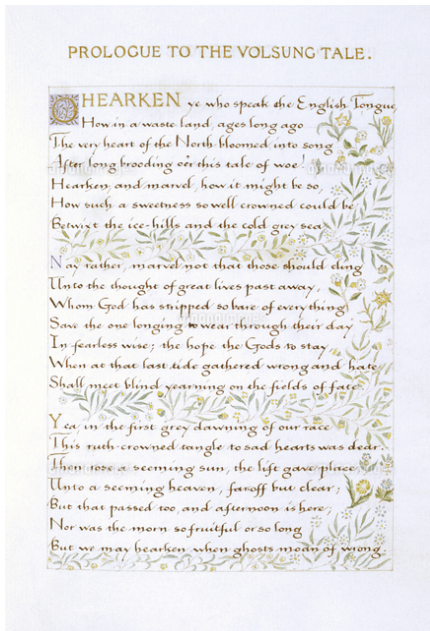 PROLOGUE TO THE VOLSUNG TALE.
O HEARKEN ye who speak the English Tongue,
How in a waste land, ages long ago
The very heart of the North bloomed into song
After long brooding o'er this tale of woe!
Hearken, and marvel, how it might be so,
How such a sweetness so well crowned could be
Betwixt the ice-hills and the cold grey sea.
Nay rather, marvel not that those should cling
Unto the thought of great lives past away,
Whom God has stripped so bare of everything
Save the one longing to wear through their day
In fearless wise; the hope the Gods to stay,
When at that last tide gathered wrong and hate
Shall meet blind yearning on the fields of fate.
Yea, in the first grey dawning of our race
This ruth-crowned tangle to sad hearts was dear.
Then rose a seeming sun, the lift gave place
Unto a seeming heaven, far off but clear;
But that passed too, and afternoon is here,
Nor was the morn so fruitful or so long
But we may hearken when ghosts moan of wrong.